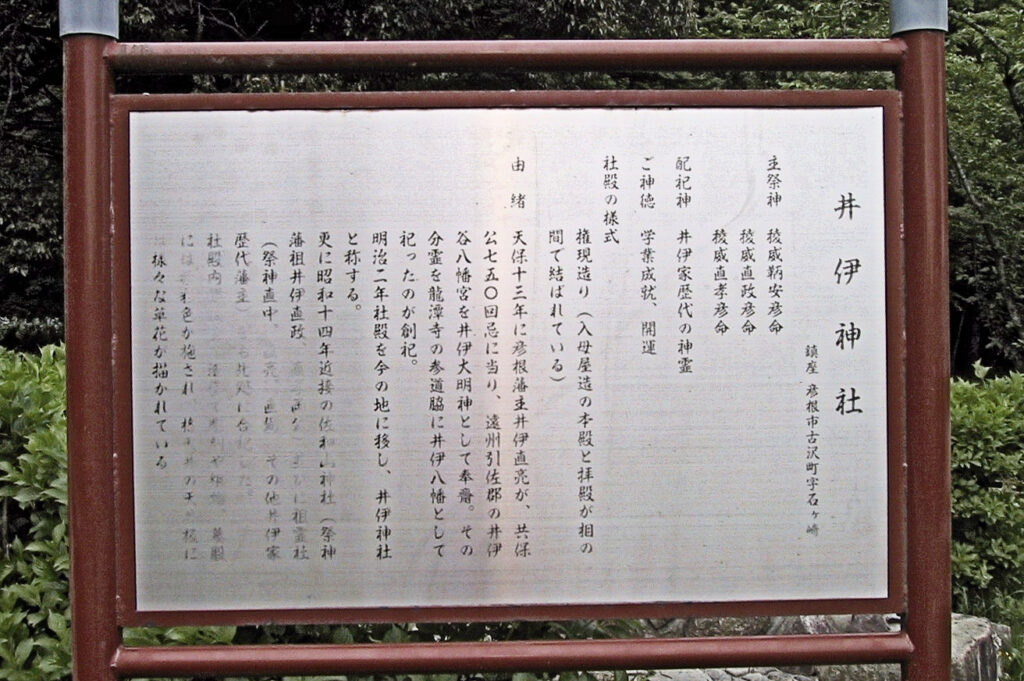 井伊神社
鎮座 彦根市古沢町字石ヶ崎
主祭神 稜威鞆安彦命
稜威直政彦命
稜威直孝彦命
配祀神 井伊家歴代の神霊
ご神徳 学業成就、開運
社殿の様式
権現造り(入母屋造の本殿と拝殿が相の
間で結ばれている)
由緒 天保十三年に彦根藩主井伊直亮が、共保
公七五〇回忌に当り、遠州引佐郡の井伊
谷八幡宮を井伊大明神として奉齋。その
分霊を龍潭寺の参道脇に井伊八幡として
祀ったのが創祀。
明治二年社殿を今の地に移し、井伊神社
と称する。
更に昭和十四年近接の佐和山神社(祭神
藩祖井伊直政 に祖霊社
(祭神直中、 その他井伊家
歴代藩主) に合 た。
社殿内
には 色が施され に
様々な草花が描かれている